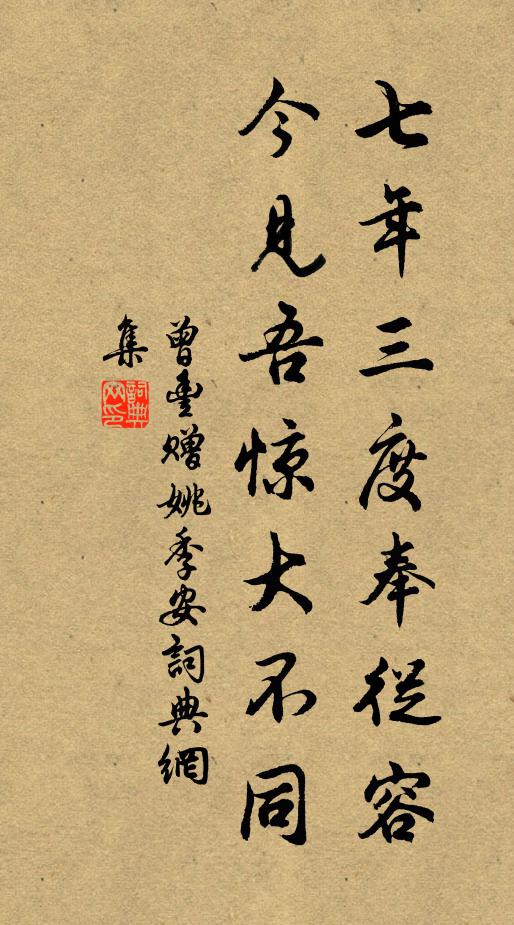 七年三度奉從容
今見吾惊大不同
曾豐贈姚季安詞典網
集
詞典
网印